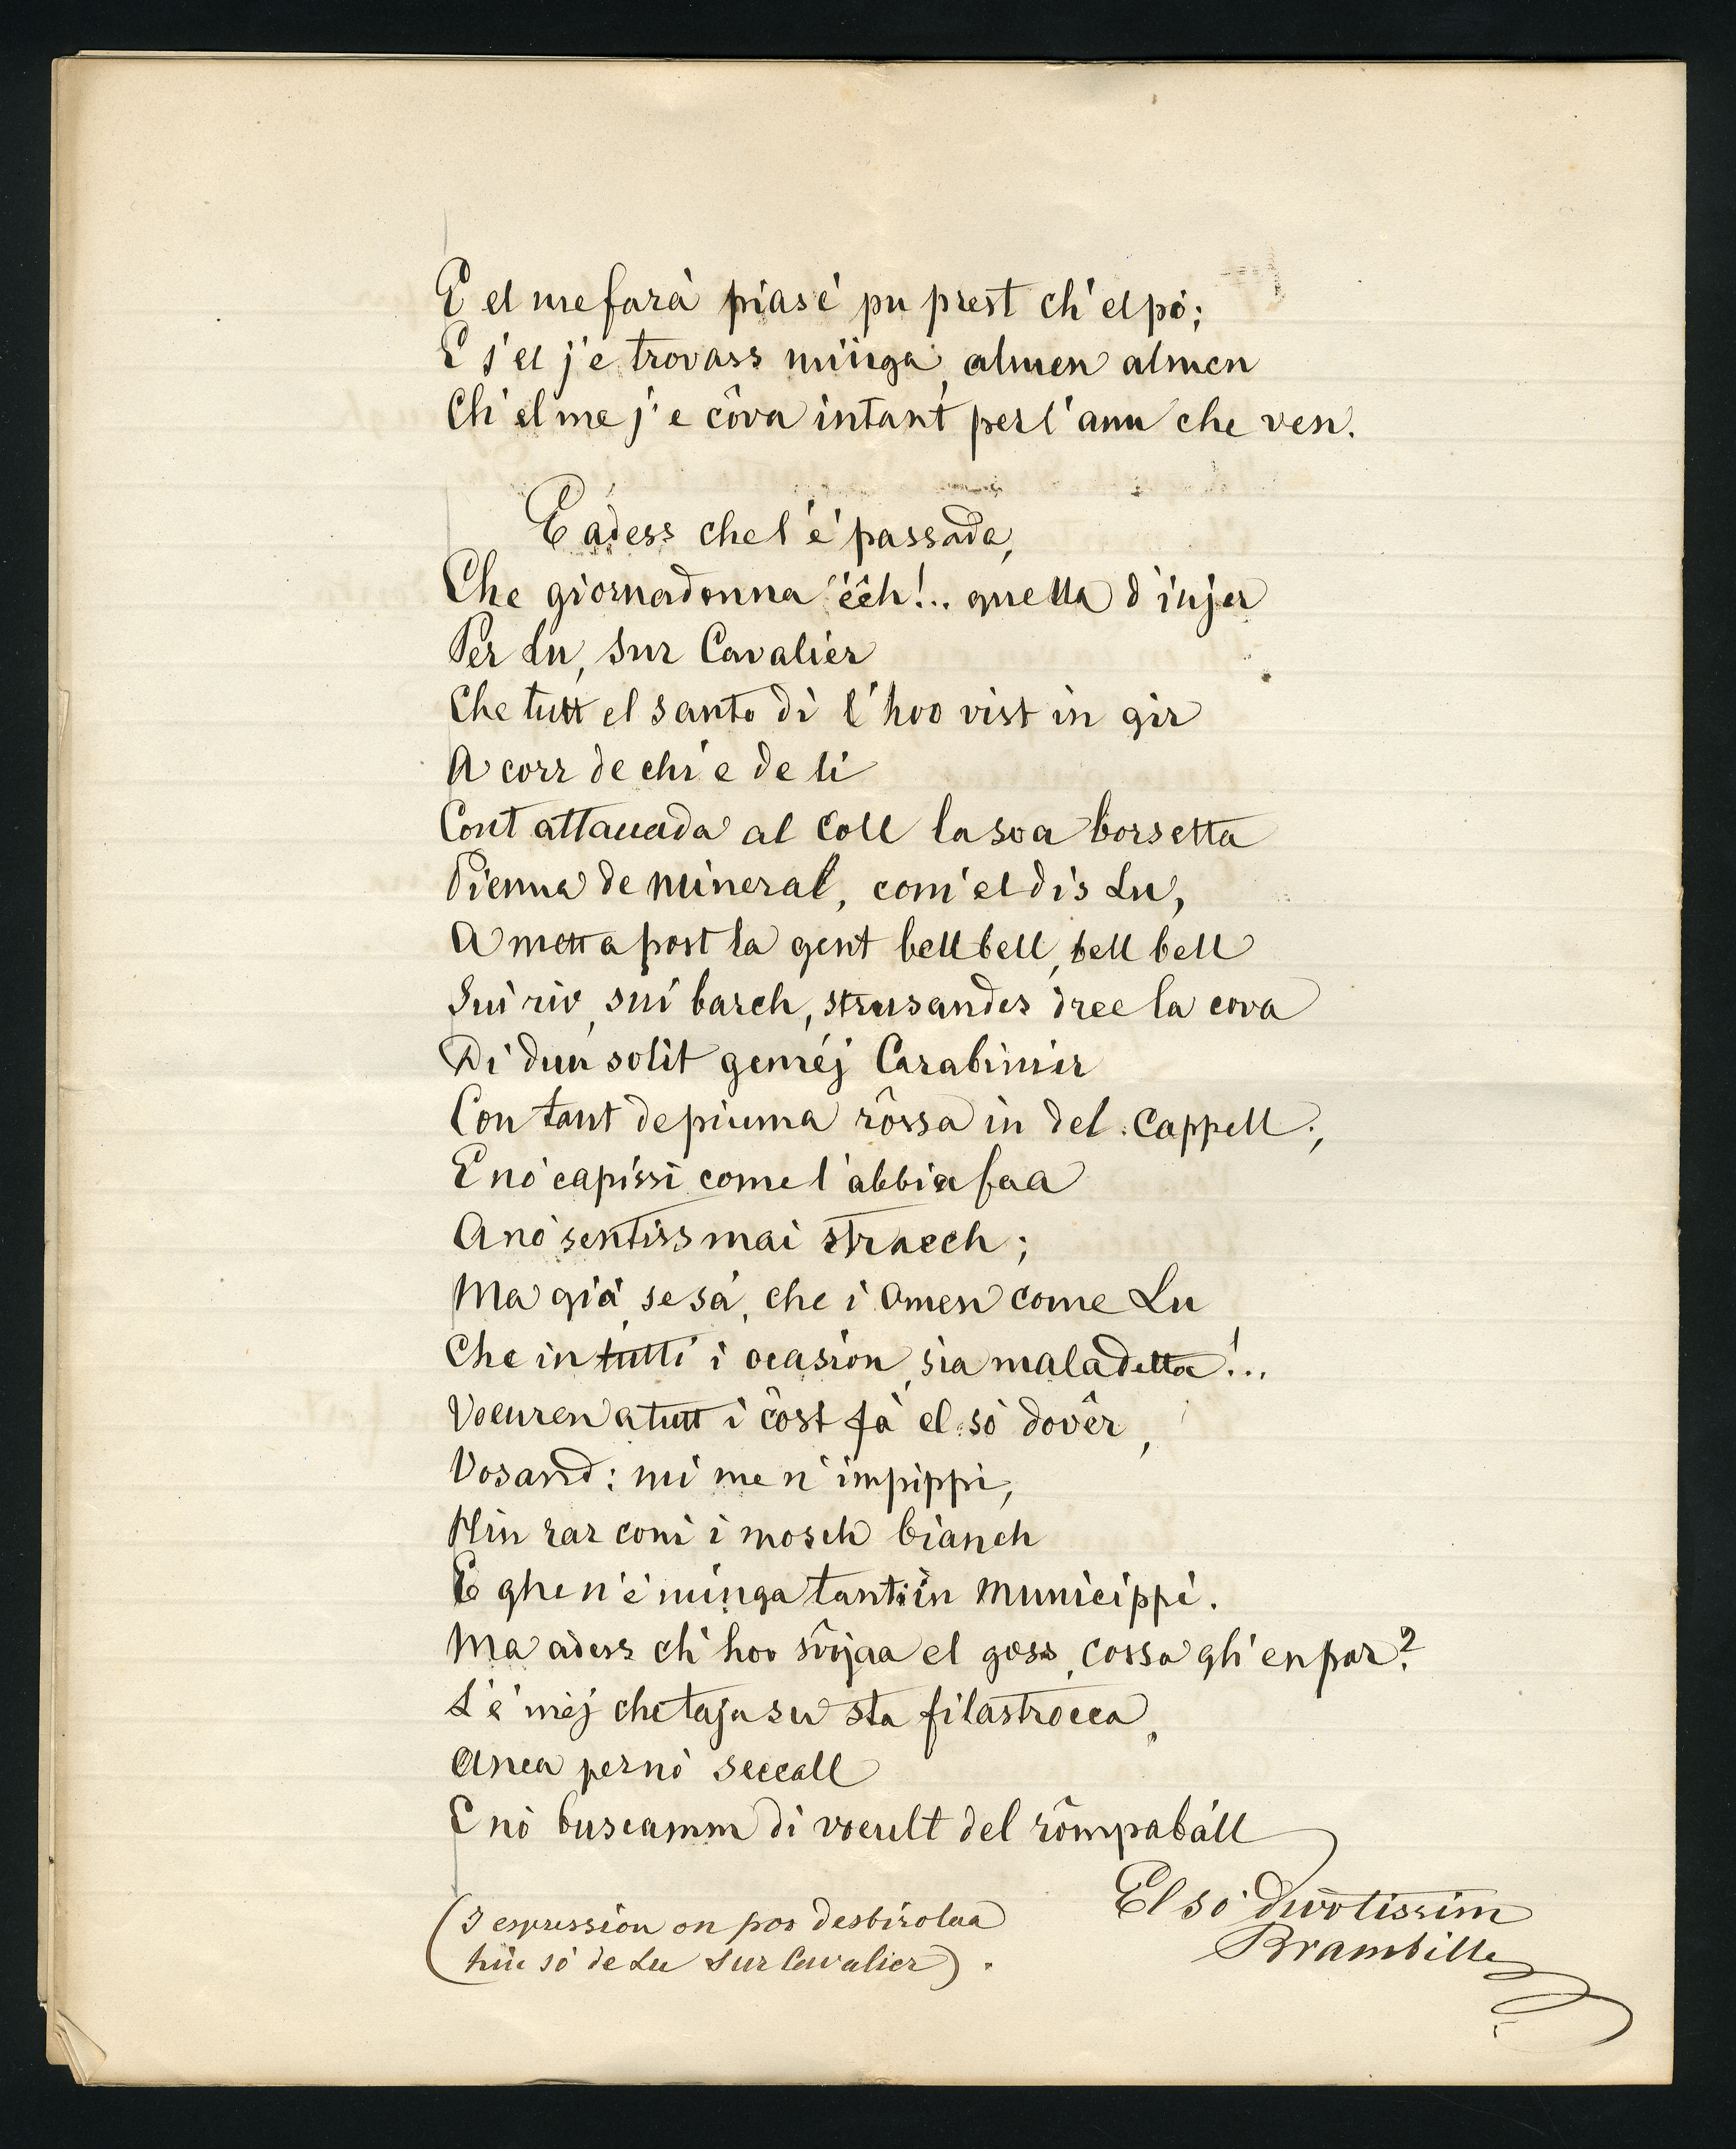 E el me farà piasé pu prest ch'el pó;
E s'el j'e trovass minga, almen almen
Ch'el me j'e côva intant per l'ann che ven.
E adess che l'é passada,
Che giornadonna éêh!.. quella d'injer
Per Lu, Sur Cavalier
Che tutt el santo dì l'hoo vist in gir
A corr de chì e de lì
Cont attaccada al coll la soa borsetta
Pienna de mineral, com' el dis Lu,
A mett a post la gent bell bell, bell bell
Sui riv, sui barch, strusandes dree la cova
Di duu solit geméj Carabinier
Con tant de piuma rôssa in del cappell;
E nò capissi come l'abbia faa
A nò sentiss mai stracch;
Ma già, se sà, che i omen come Lu
Che in tutti i ocasion, sia maladetta!..
Voeuren a tutt i côst fà el sò dovêr,
Vosand: mi me n'impippi,
Hin rar com' i mosch bianch
E ghe n'é minga tanti in Municippi.
Ma adess ch'hoo svojaa el goss, cossa gh'en par?
L'é mèj che taja su sta filastrocca,
Anca per nò seccall
E nò buscamm di voeult del rômpabáll
El sò divôtissim
Brambilla
(I espression on poo desbirolaa
hin sò de Lu Sur Cavalier).